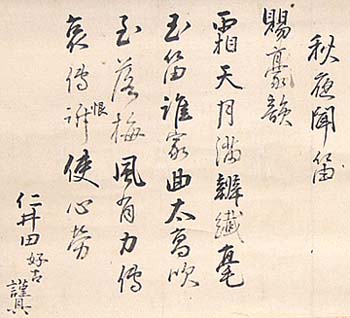 秋夜聞笛
賜豪韻
霜天月満辨纖毫
玉笛誰家曲太高吹
到落梅風有力傳
哀傳訴恨使心勞
仁井田好古
謹具